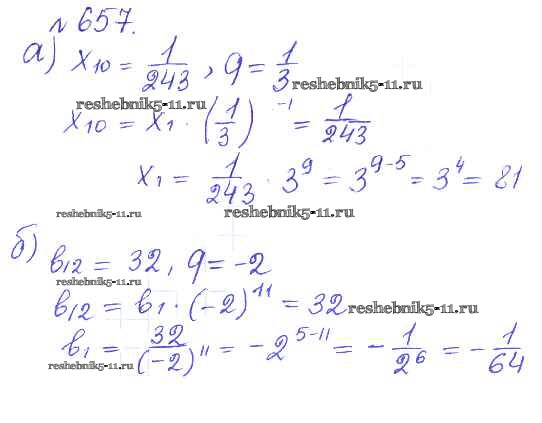 № 657.
а) x₁₀ = 1/243, q = 1/3
reshebnik5-11.ru
reshebnik5-11.ru
x₁₀ = x₁ · (1/3)⁻¹ = 1/243
x₁ = 1/243 · 3⁹ = 3⁹⁻⁵ = 3⁴ = 81
reshebnik5-11.ru reshebnik5-11.ru
б) b₁₂ = 32, q = -2
reshebnik5-11.ru
b₁₂ = b₁ · (-2)¹¹ = 32 reshebnik5-11.ru
b₁ = 32/(-2)¹¹ = -2⁵⁻¹¹ = -1/2⁶ = -1/64
reshebnik5-11.ru